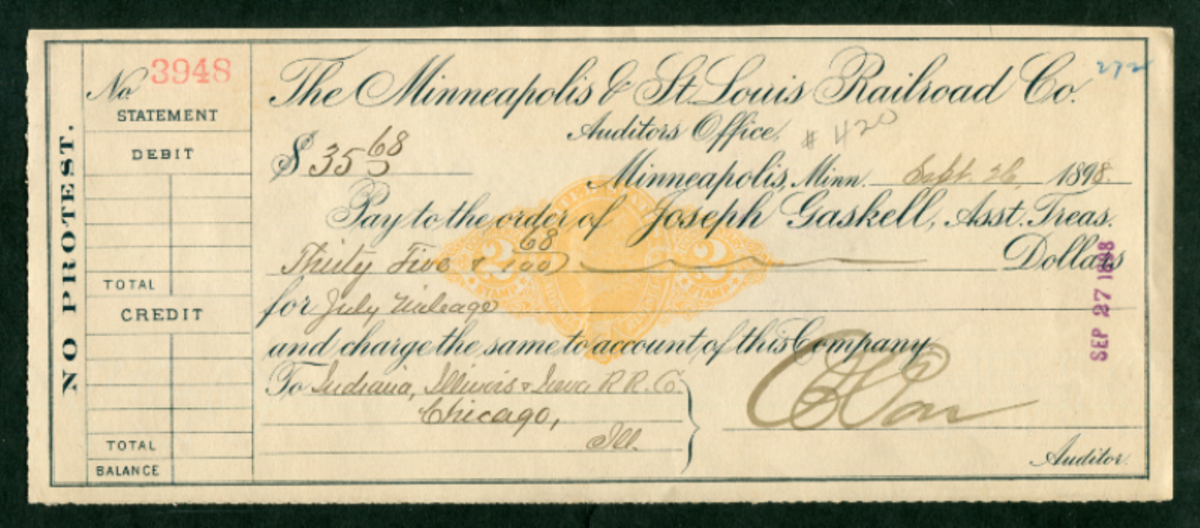 NO PROTEST.
No. 3948
STATEMENT
DEBIT
TOTAL
CREDIT
TOTAL
BALANCE
The Minneapolis & St. Louis Railroad Co.
272
Auditors Office.
# 420
$ 35 68
Minneapolis, Minn. Sept. 26, 1898.
Pay to the order of Joseph Gaskell, Asst. Treas.
Thirty Five & 68/100 Dollars
2 2
for July Mileage
SEP 27 1898
and charge the same to account of this Company
To Indiana, Illinois & Iowa R. R. Co.
Chicago,
Ill.
Auditor.